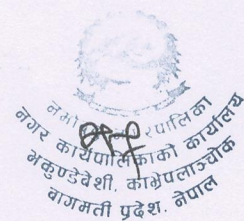 नमोबुद्ध नगरपालिका
नगर कार्यपालिकाको कार्यालय
भकुण्डेवेशी, काभ्रेपलाञ्चोक
बागमती प्रदेश, नेपाल